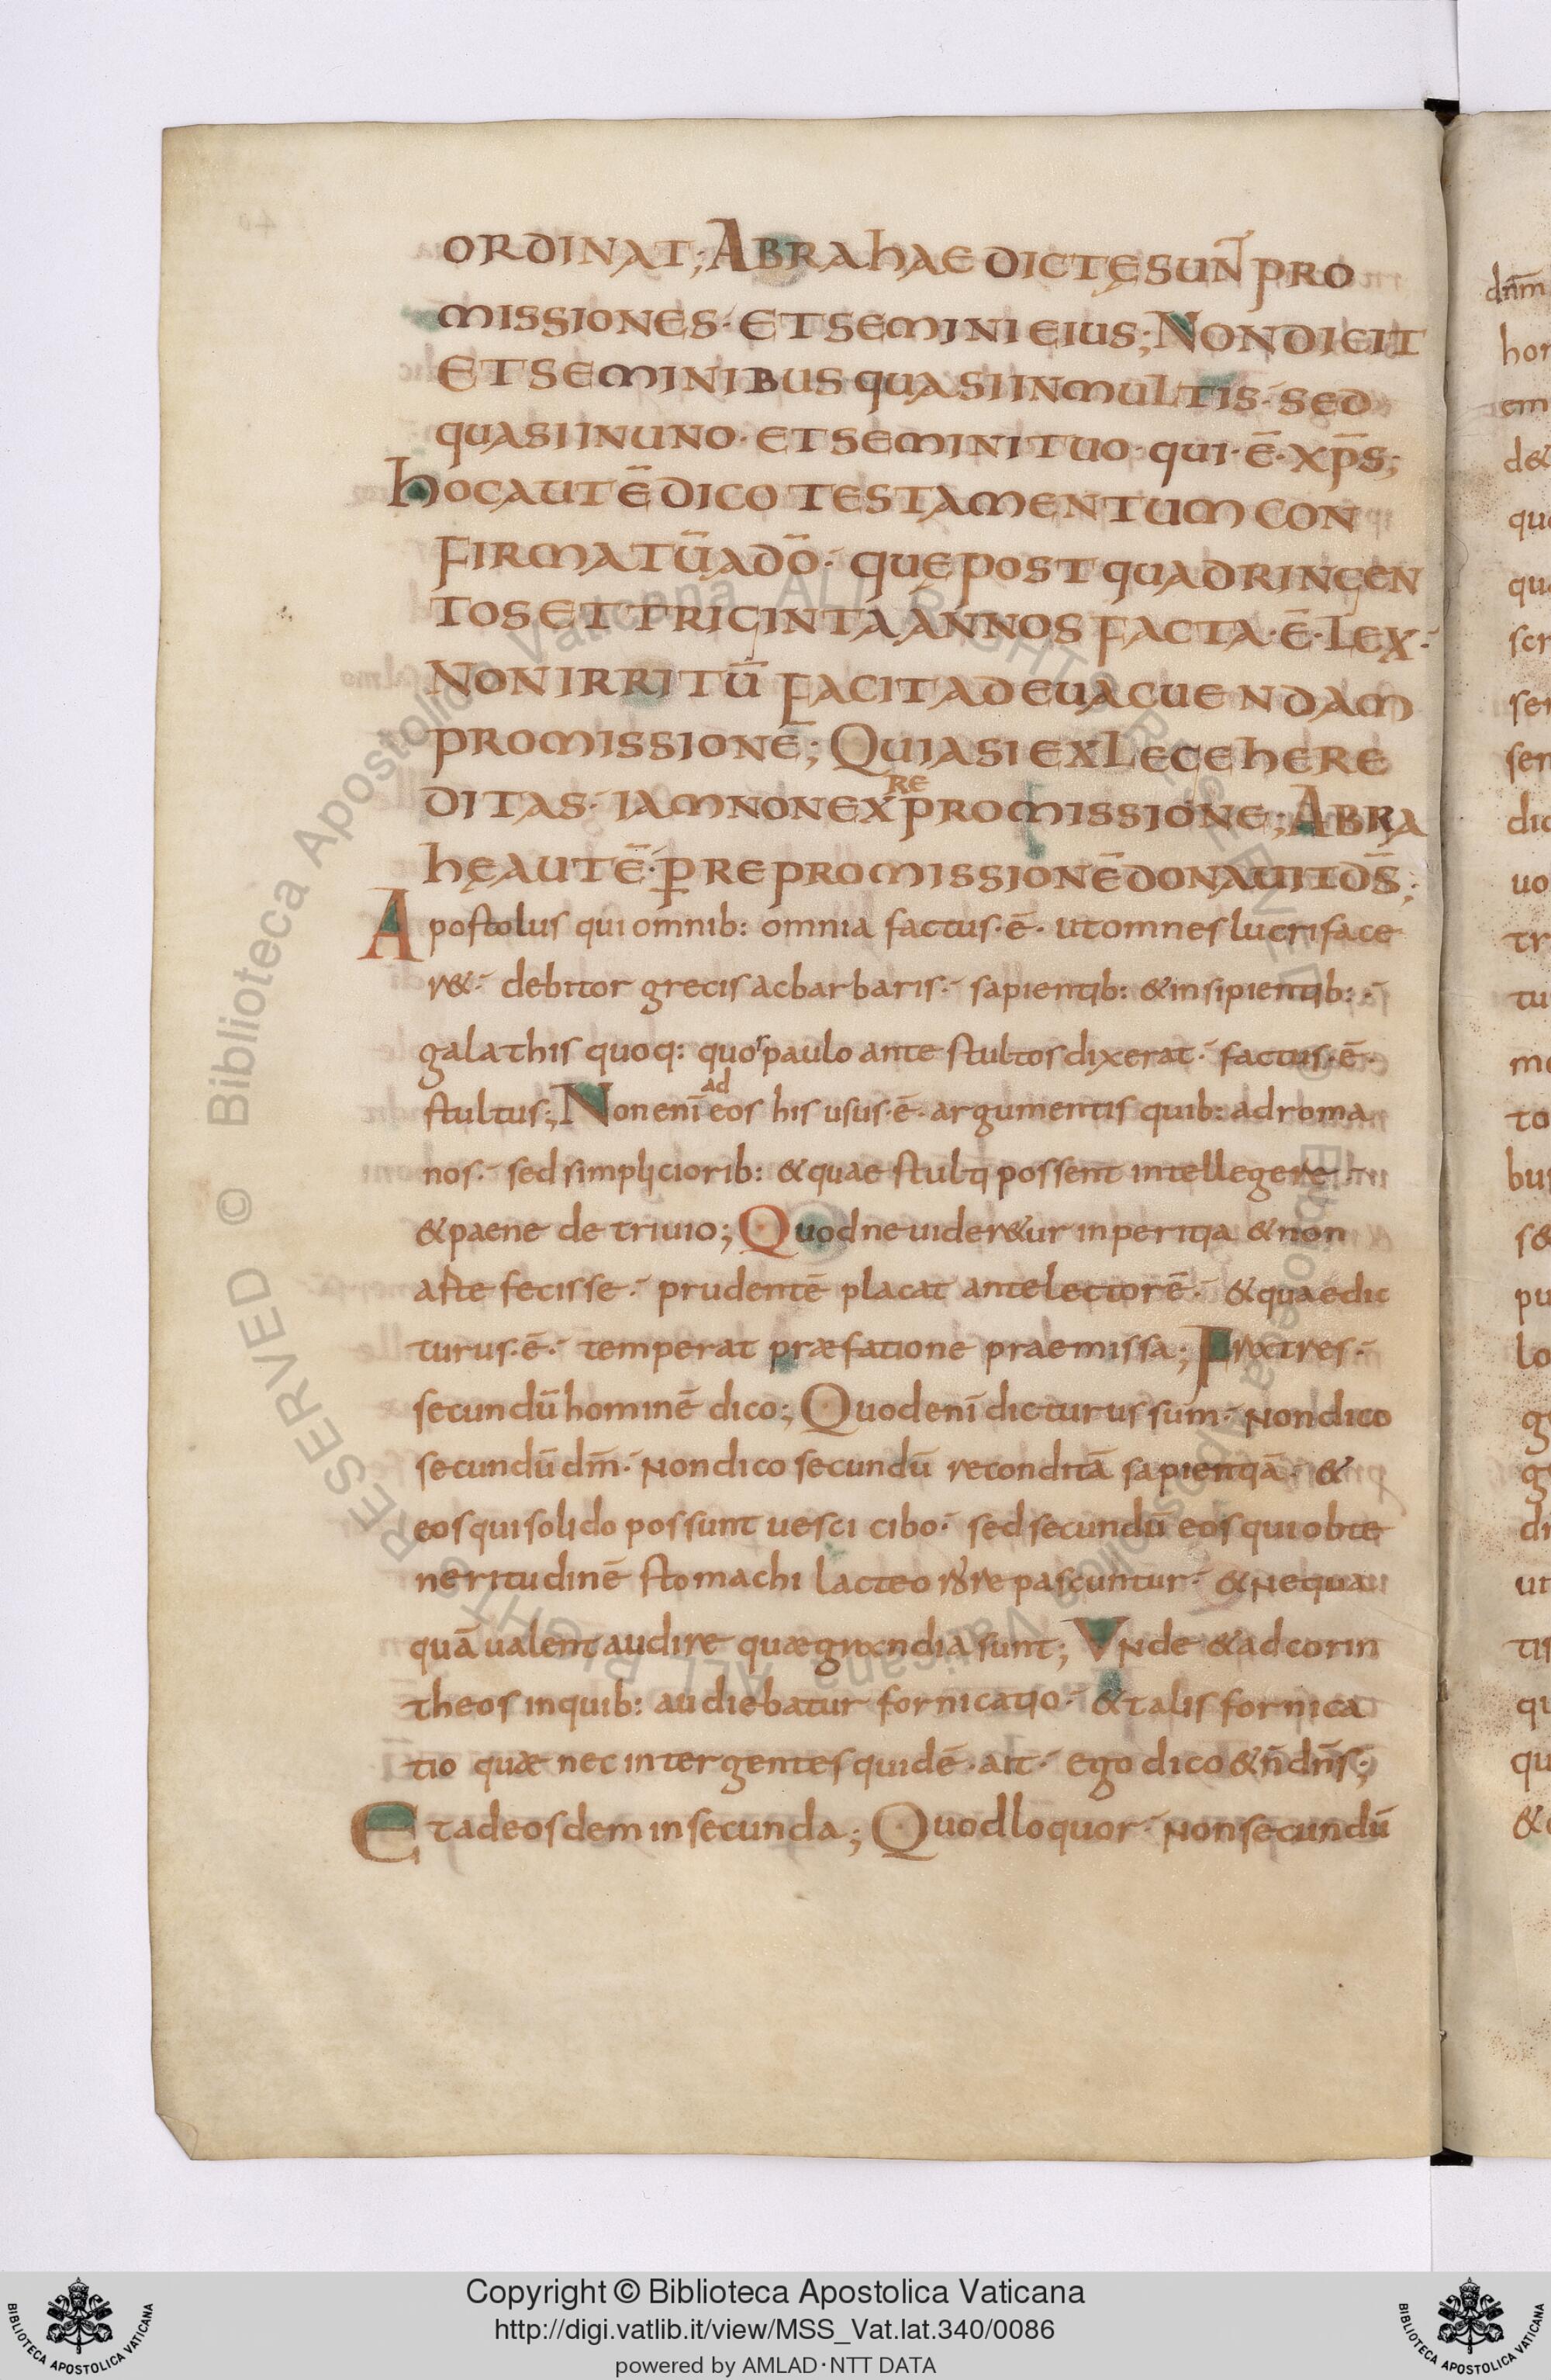 ORDINAT; ABRAHAE DICTĘ SUNT PRO
MISSIONES· ET SEMINI EIUS; NON DICIT
ET SEMINIBUS QUASI IN MULTIS· SED
QUASI IN UNO· ET SEMINI TUO· QUI· Ē· XP̄S;
HOC AUTĒ DICO TESTAMENTUM CON
FIRMATŪ A DŌ· QUĘ POST QUADRINGEN
TOS ET TRIGINTA ANNOS FACTA· Ē· LEX·
NON IRRITŪ FACIT AD EUACUENDAM
PROMISSIONĒ; QUIA SI EX LEGE HERE
DITAS· IAM NON EX PROMISSIONE; ABRA
RE
HĘ AUTĒ· P̱ REPROMISSIONĒ DONAUIT DS̄;
Apostolus qui omnib: omnia factus· ē· ut omnes lucriface
r&· debitor grecis ac barbaris· sapientib: & insipientib:·
galathis quoq: quos paulo ante stultos dixerat· factus· ē·
stultus; Non enī ad eos his usus· ē· argumentis quib: ad roma
nos· sed simpliciorib: & quae stulti possent intellegere
& paene de triuio; Quod ne uider&ur inperitia & non
arte fecisse· prudentē placat ante lectorē· & quae dic
turus· ē· temperat præfatione praemissa; Fratres·
secundū hominē dico; Quod enī dicturus sum· Non dico
secundū dm̄· Non dico secundū reconditā sapientiā· &
eos qui solido possunt uesci cibo· sed secundū eos qui ob te
neritudinē stomachi lacteo rore pascuntur· & Nequa
quā ualent audire quæ grandia sunt; Vnde & ad corin
theos in quib: audiebatur fornicatio· & talis fornica
tio quæ nec inter gentes quidē· ait· ego dico & n̄ dn̄s;
Et ad eosdem in secunda; Quod loquor· Non secundū
dn̄m
Copyright © Biblioteca Apostolica Vaticana
http://digi.vatlib.it/view/MSS_Vat.lat.340/0086
powered by AMLAD·NTT DATA
BIBLIOTECA APOSTOLICA VATICANA
BIBLIOTECA APOSTOLICA VATICANA